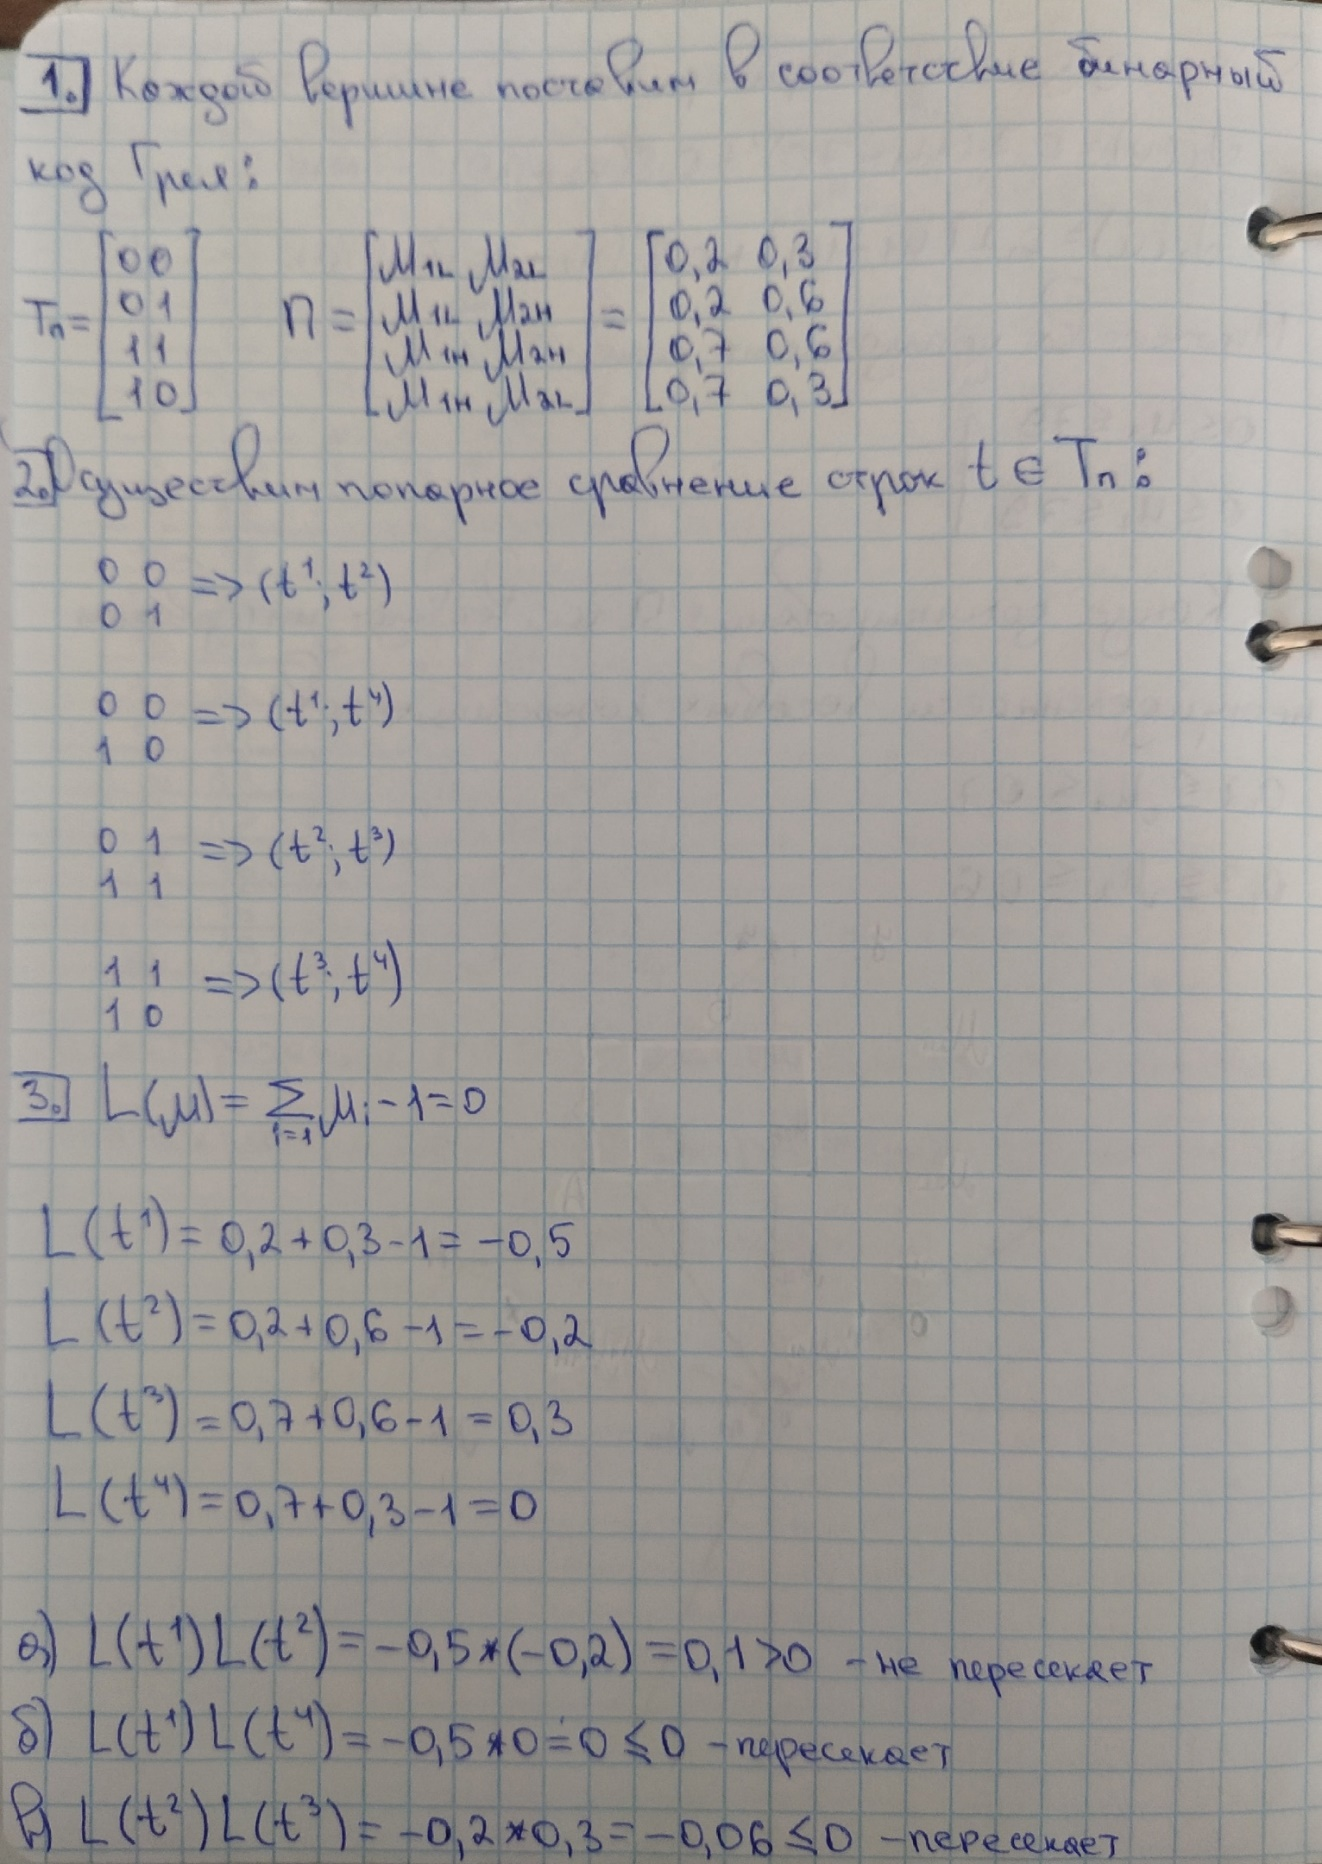 1. Каждой вершине поставим в соответствие бинарный
код Грея:
Tп = [00 01 11 10] П = [μ1н μ2н μ1н μ2н μ1н μ2н μ1н μ2н] = [0,2 0,3 0,2 0,6 0,7 0,6 0,7 0,3]
2. Осуществим попарное сравнение строк t ∈ Tп:
0 0
0 1 => (t¹; t²)
0 0
1 0 => (t¹; t⁴)
0 1
1 1 => (t²; t³)
1 1
1 0 => (t³; t⁴)
3. L(μ) = Σ i=1 μi - 1 = 0
L(t¹) = 0,2 + 0,3 - 1 = -0,5
L(t²) = 0,2 + 0,6 - 1 = -0,2
L(t³) = 0,7 + 0,6 - 1 = 0,3
L(t⁴) = 0,7 + 0,3 - 1 = 0
а) L(t¹) L(t²) = -0,5 * (-0,2) = 0,1 > 0 - не пересекает
б) L(t¹) L(t⁴) = -0,5 * 0 = 0 ≤ 0 - пересекает
в) L(t²) L(t³) = -0,2 * 0,3 = -0,06 ≤ 0 - пересекает